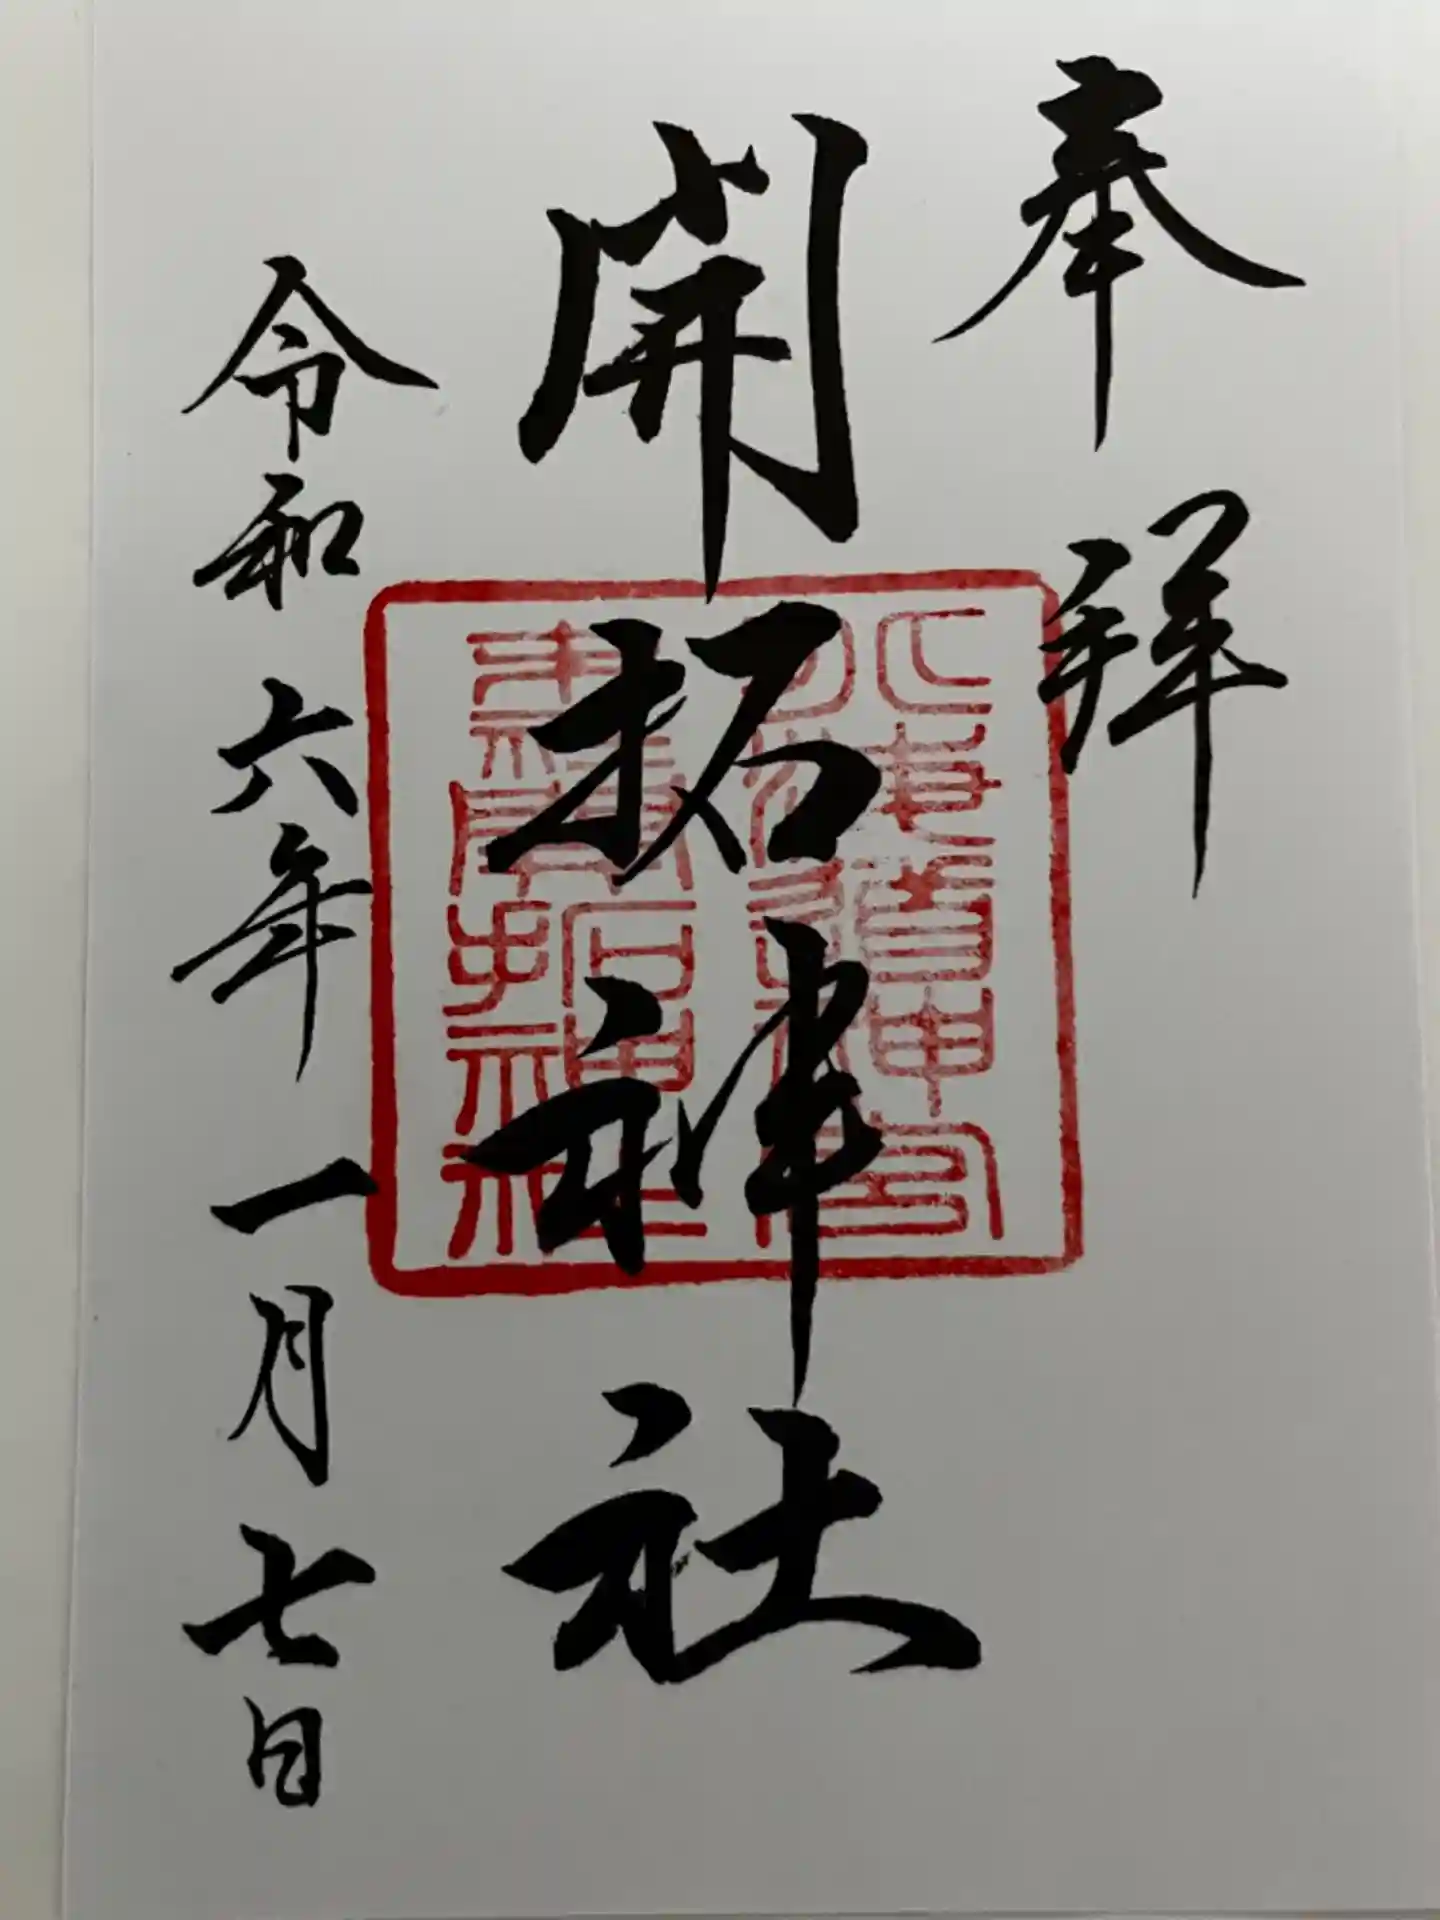 奉拝
開拓神社
北海道神宮
末社開拓神社
令和六年一月七日